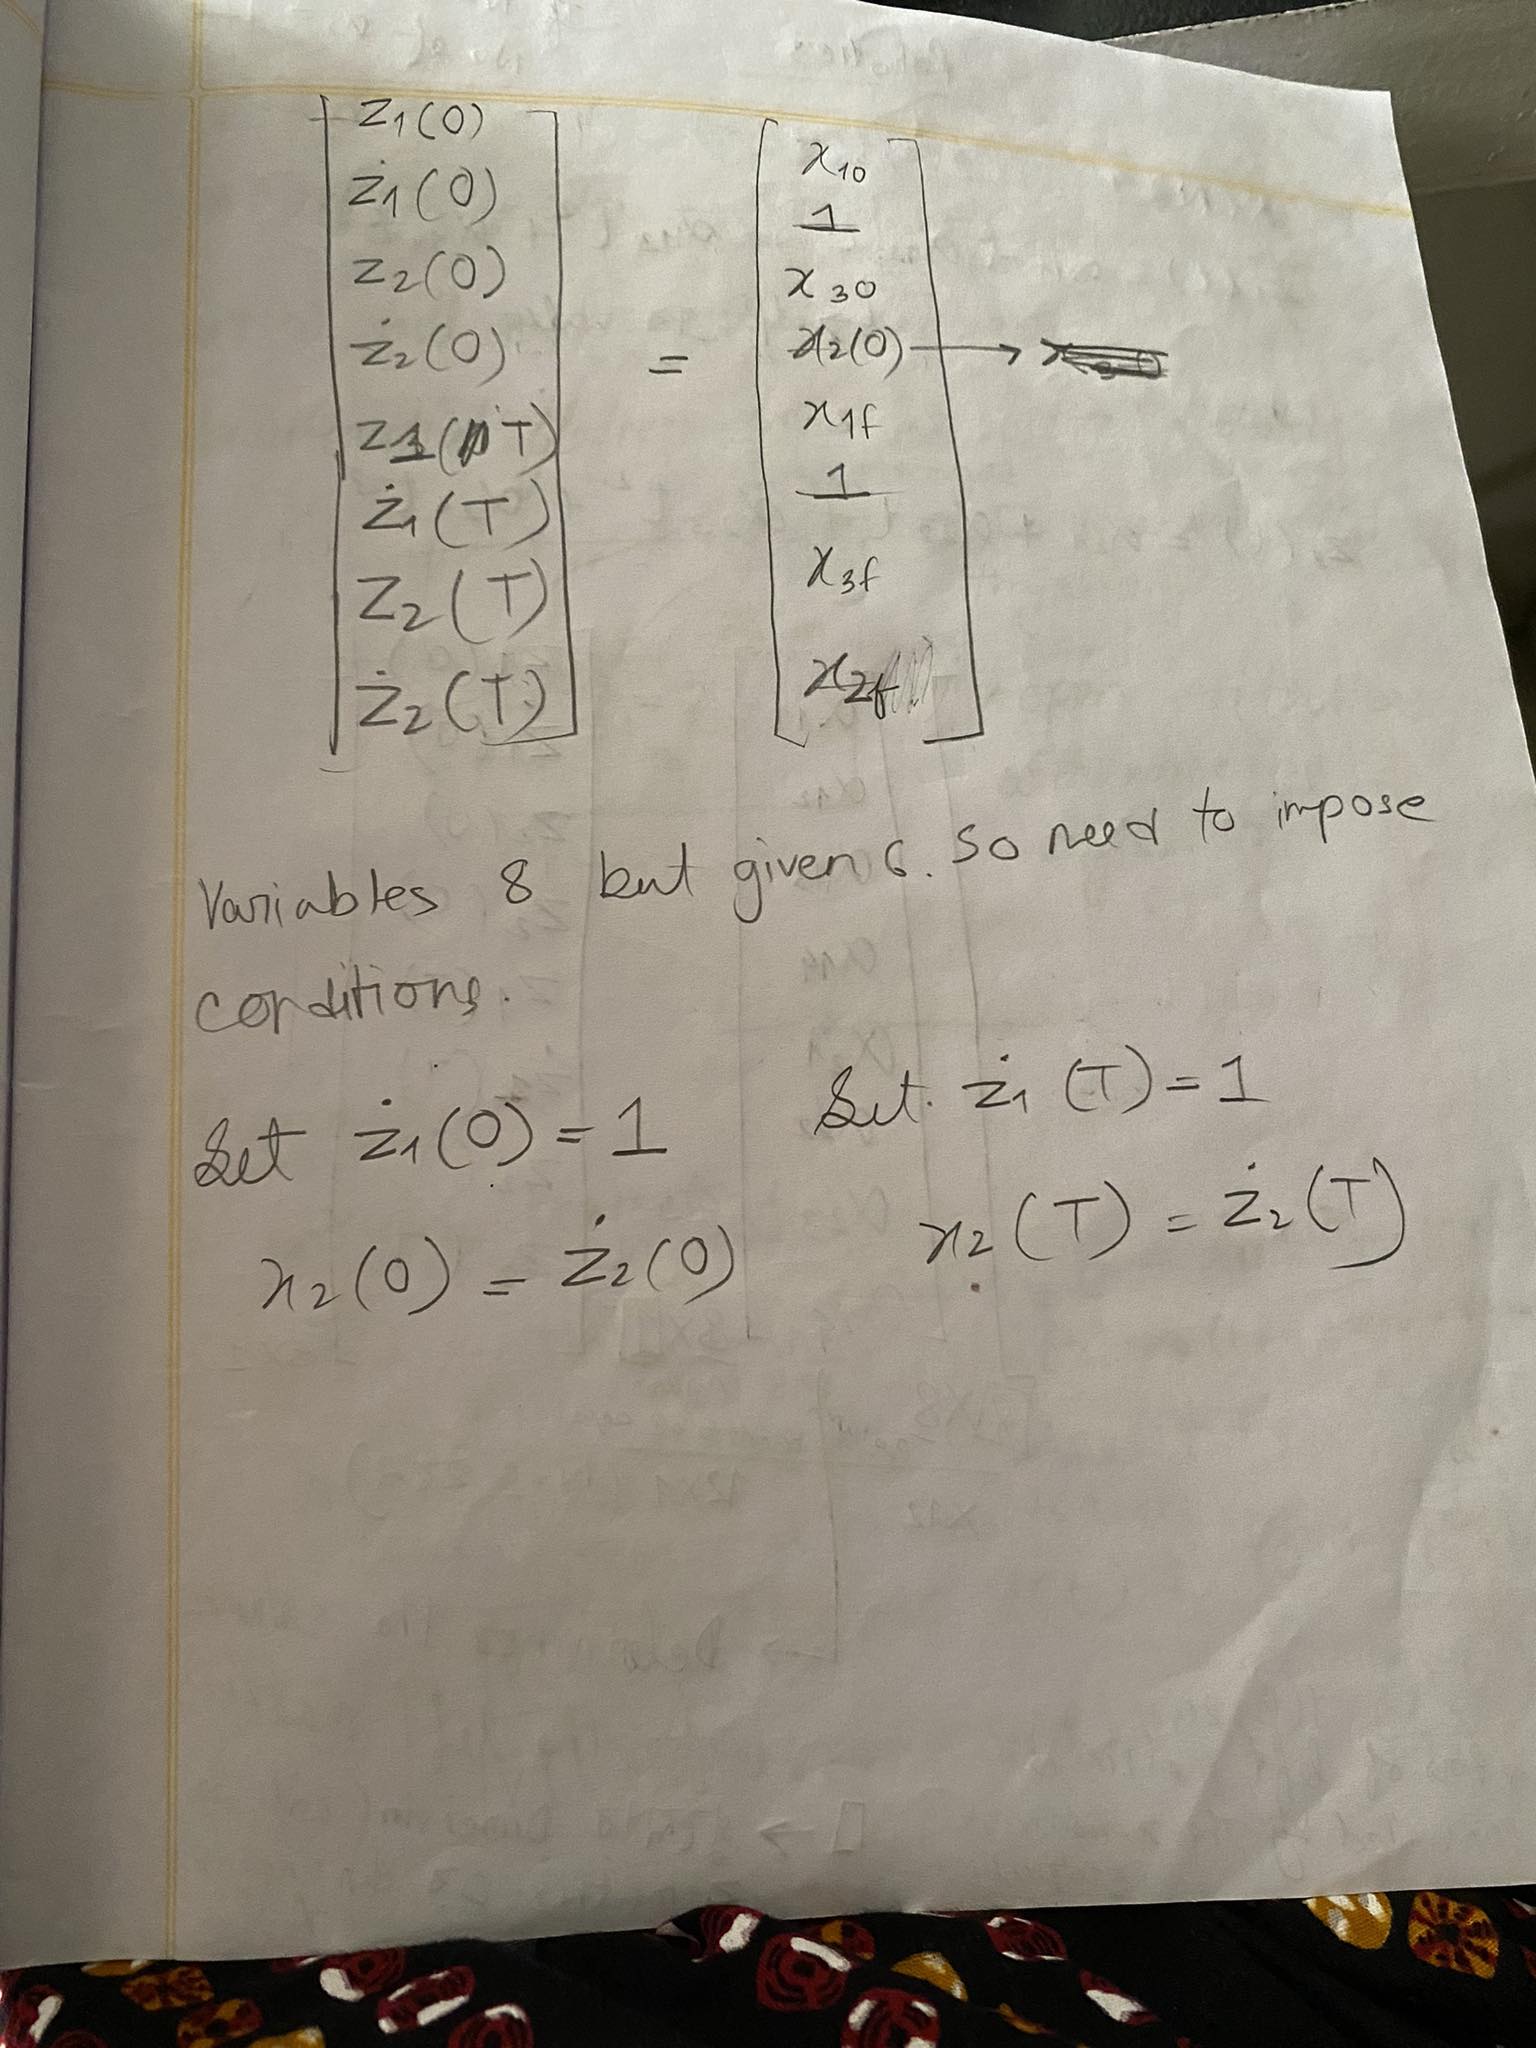 z₁(0)
ż₁(0)
z₂(0)
ż₂(0)
z₁(T)
ż₁(T)
z₂(T)
ż₂(T)
=
x₁₀
1
x₃₀
x₂(0) →
x₁f
1
x₃f
x₂f
Variables 8 but given 6. So need to impose
conditions.
Set ż₁(0) = 1
Set. ż₁(T) = 1
x₂(0) = ż₂(0)
x₂(T) = ż₂(T)